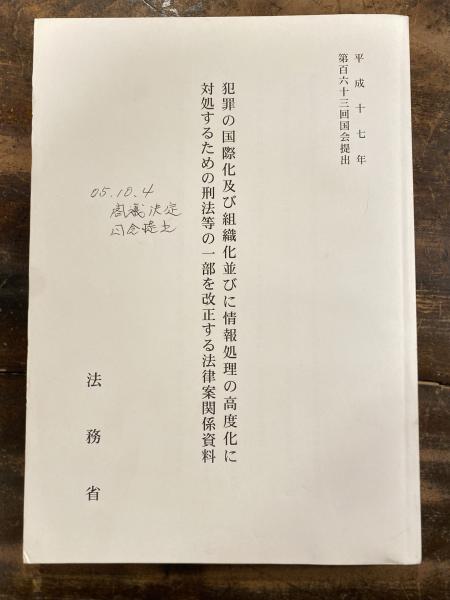 平成十七年
第百六十三回国会提出
犯罪の国際化及び組織化並びに情報処理の高度化に
対処するための刑法等の一部を改正する法律案関係資料
05.10.4
閣議決定
国会提出
法務省